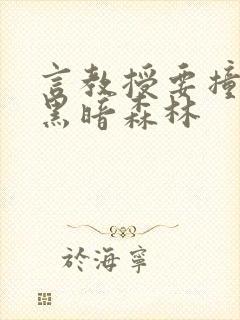 言教授要撞
黑暗森林
於海寧